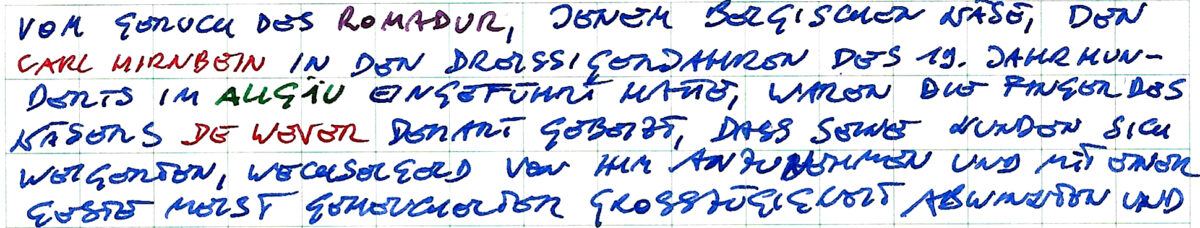 VOM GERUCH DES ROMADUR, JENEM BERGISCHEN KÄSE, DEN
CARL HIRNBEIN IN DEN DREISSIGERJAHREN DES 19. JAHRHUN-
DERTS IM ALLGÄU EINGEFÜHRT HATTE, WAREN DIE FINGER DES
KÄSERS DE WEVER DERART GEBEIZT, DASS SEINE KUNDEN SICH
WEIGERTEN, WECHSELGELD VON IHM ANZUNEHMEN UND MIT EINER
GESTE MEIST GEHEUCHELTER GROSSZÜGIGKEIT ABWINKTEN UND